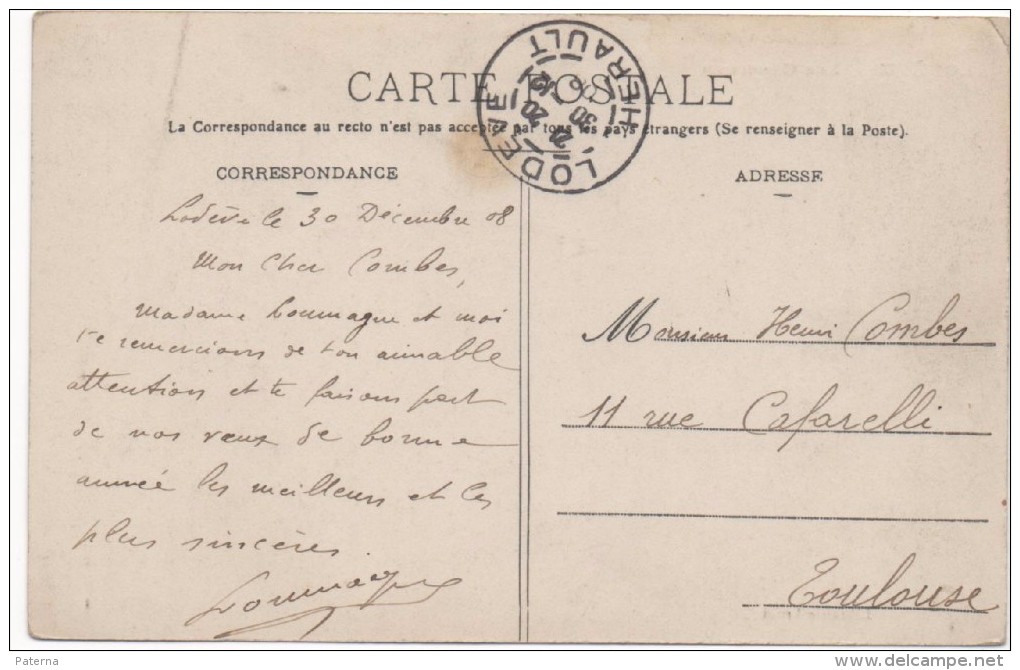 CARTE POSTALE
La Correspondance au recto n'est pas acceptée par tous les pays étrangers (Se renseigner à la Poste).
LODEVE HERAULT
21 20
30 12
CORRESPONDANCE
Lodève le 30 Décembre 08
Mon Cher Combes,
Madame Loumagne et moi
te remercions de ton aimable
attention et te faisons part
de nos vœux de bonne
année les meilleurs et les
plus sincères.
Loumagne
ADRESSE
Monsieur Henri Combes
11 rue Cafarelli
Toulouse
Paterna
www.delcampe.net